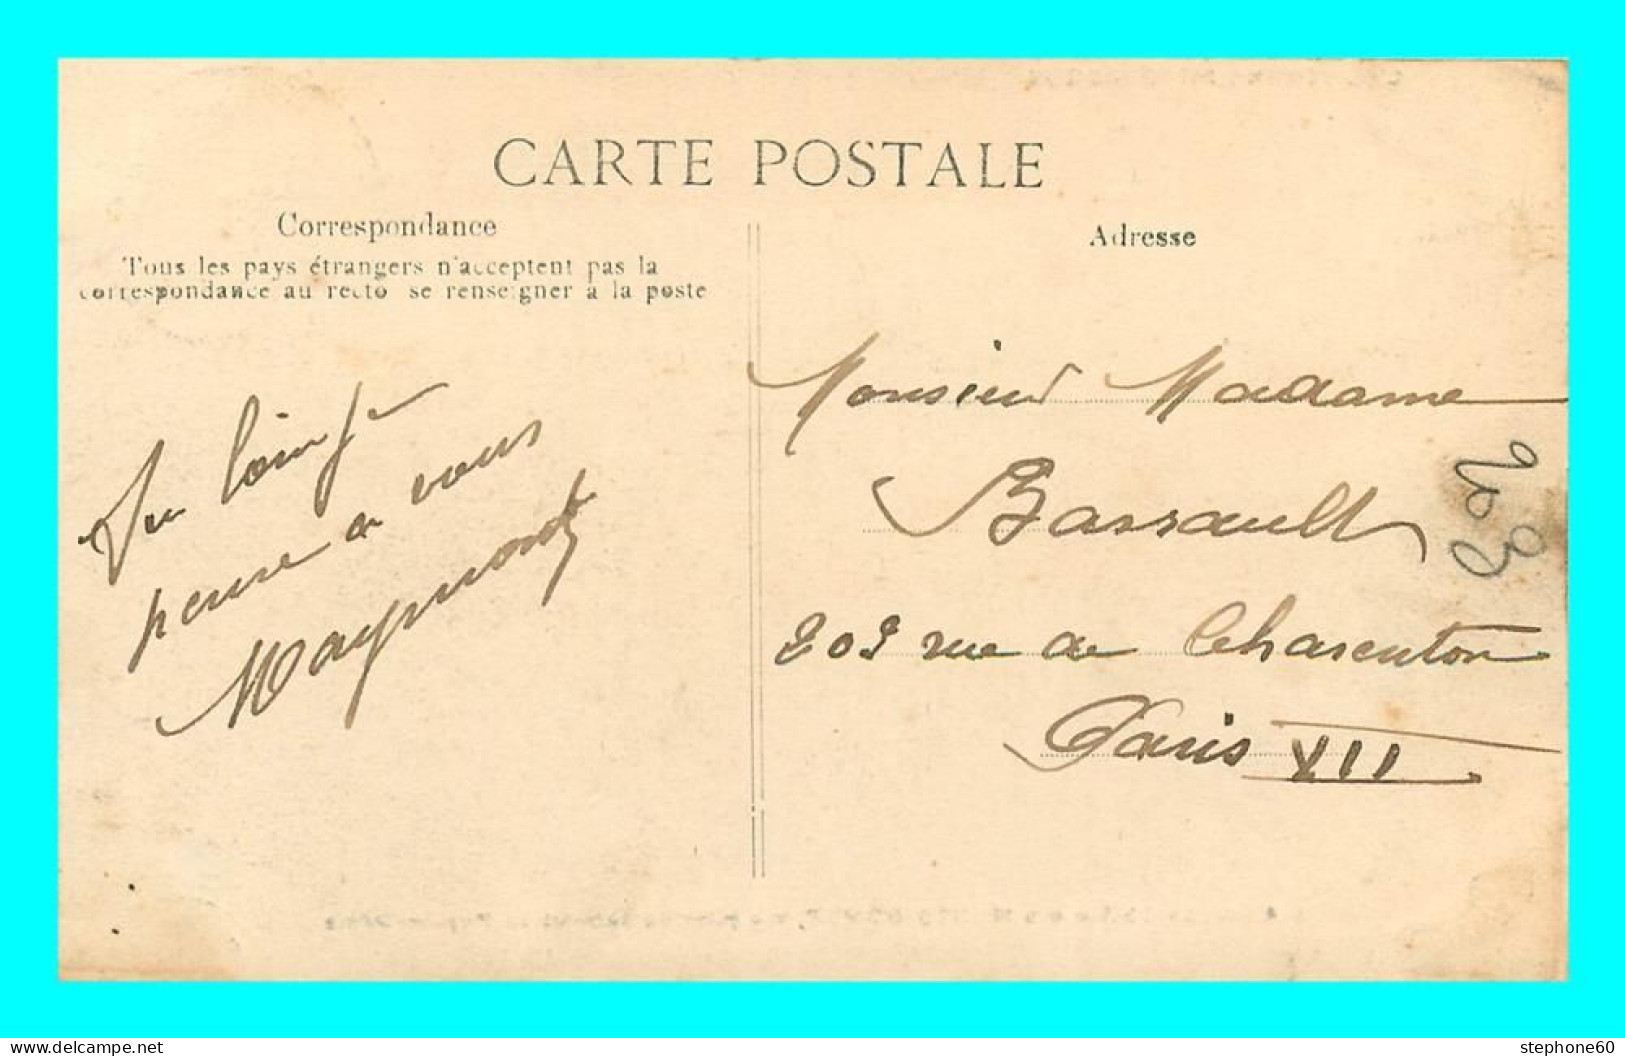 CARTE POSTALE
Correspondance
Tous les pays étrangers n'acceptent pas la
correspondance au recto se renseigner à la poste
Adresse
loin je
pense a vous
Monsieur Madame
Bassault
209 rue de Charenton
Paris XII
www.delcampe.net
stephone60